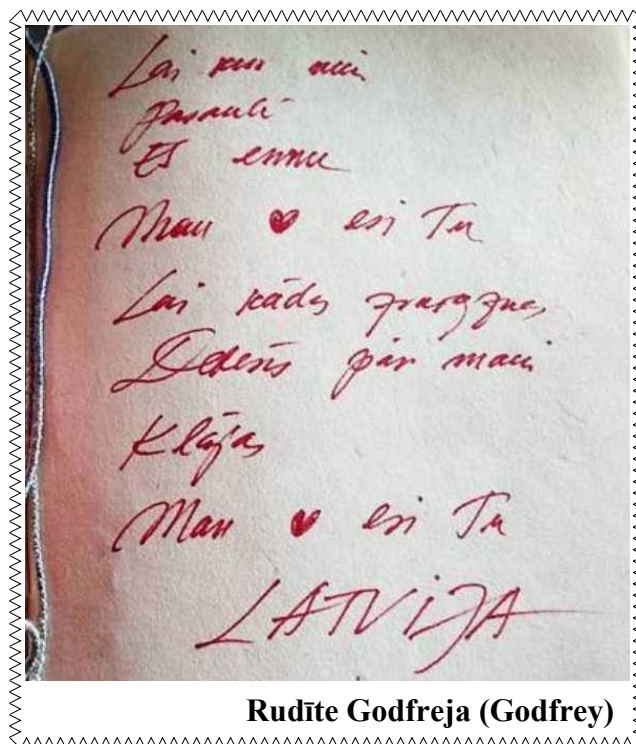 Lai kur
pasaulē
ES
Man ♥ esi Tu
Lai kādas zvaigznes
Debesīs pār mani
Klājas
Man ♥ esi Tu
LATVIJA
Rudīte Godfreja (Godfrey)